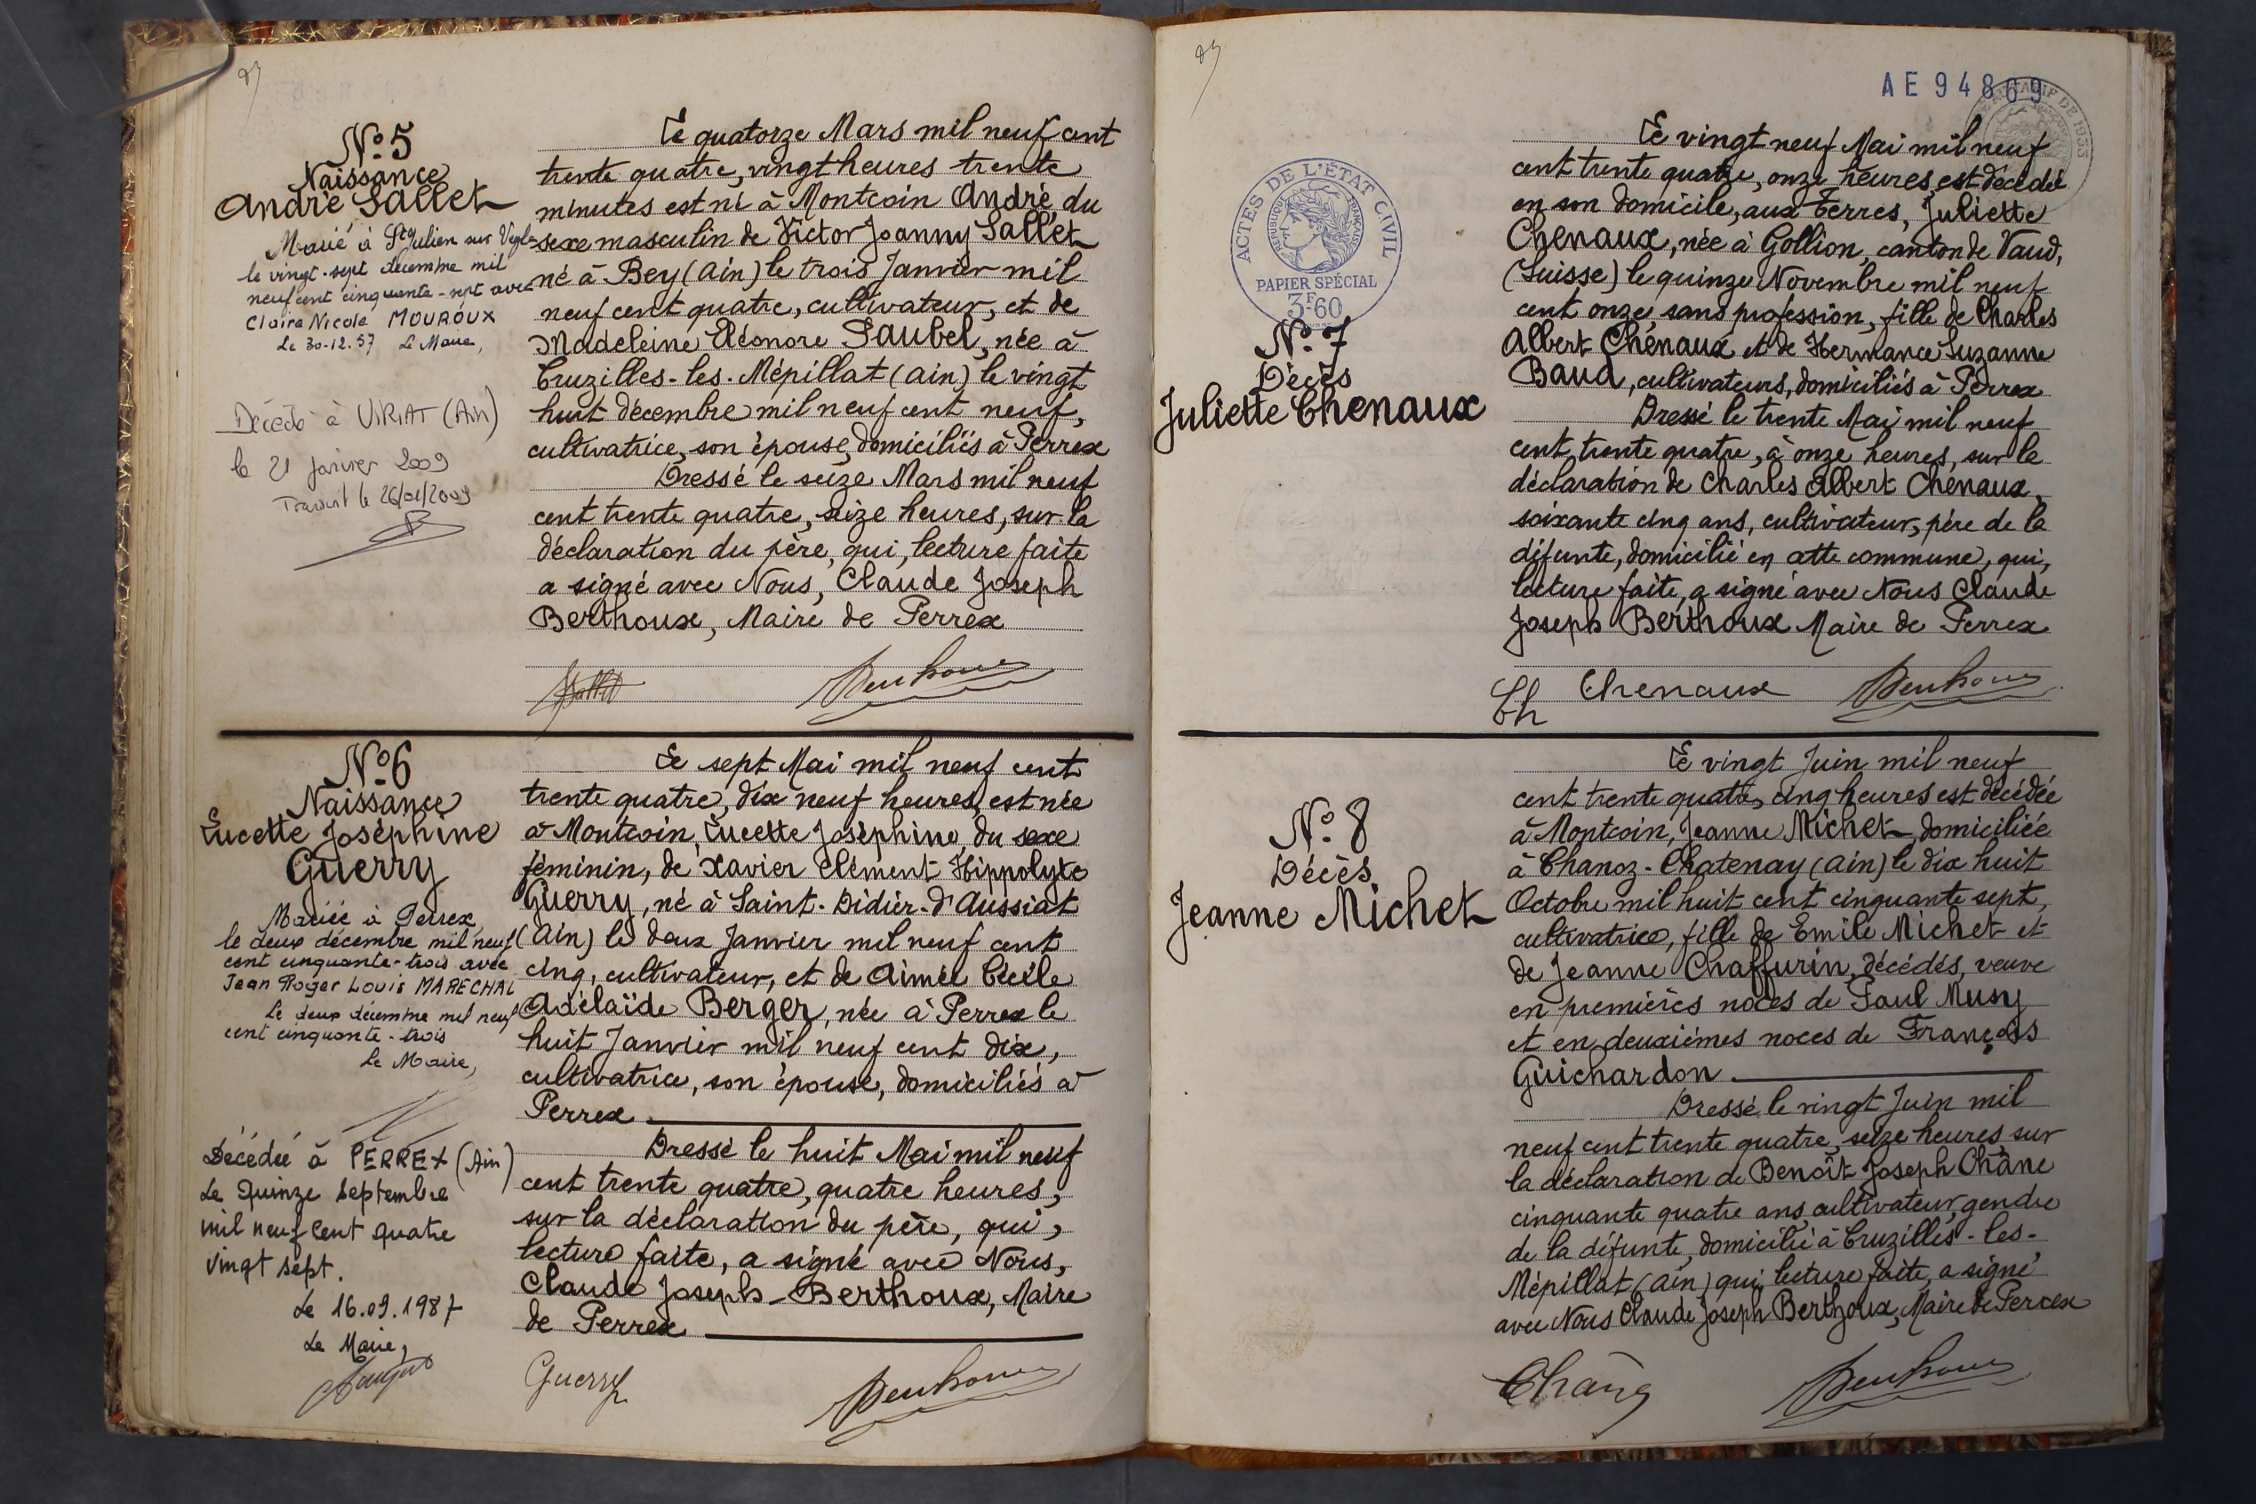 N° 5
Naissance
André Sallet
Marié à St Julien sur Veyle
le vingt-sept décembre mil
neuf cent cinquante-sept avec
Claire Nicole MOUROUX
Le 30-12.57 Le Maire,
Décédé à VIRIAT (Ain)
le 21 janvier 2009
Transcrit le 26/01/2009
Le quatorze Mars mil neuf cent
trente quatre, vingt heures trente
minutes est né à Montcoin André, du
sexe masculin de Victor Joanny Sallet
né à Bey (Ain) le trois Janvier mil
neuf cent quatre, cultivateur, et de
Madeleine Eléonore Laubel, née à
Cruzilles-les-Mépillat (Ain) le vingt
huit décembre mil neuf cent neuf,
cultivatrice, son épouse, domiciliés à Perrex
Dressé le seize Mars mil neuf
cent trente quatre, seize heures, sur la
déclaration du père, qui, lecture faite
a signé avec Nous, Claude Joseph
Berthoux, Maire de Perrex
N° 6
Naissance
Lucette Joséphine
Guerry
Mariée à Perrex,
le deux décembre mil neuf
cent cinquante-trois avec
Jean Roger Louis MARECHAL
Le deux décembre mil neuf
cent cinquante-trois
Le Maire,
Décédée à PERREX (Ain)
Le Quinze Septembre
mil neuf cent quatre
vingt sept.
Le 16.09.1987
Le Maire,
Le sept Mai mil neuf cent
trente quatre, dix neuf heures, est née
à Montcoin, Lucette Joséphine, du sexe
féminin, de Xavier Clément Hippolyte
Guerry, né à Saint-Didier-d'Aussiat
(Ain) le deux Janvier mil neuf cent
cinq, cultivateur, et de Aimée Cécile
Adélaïde Berger, née à Perrex le
huit Janvier mil neuf cent dix,
cultivatrice, son épouse, domiciliés à
Perrex
Dressé le huit Mai mil neuf
cent trente quatre, quatre heures,
sur la déclaration du père, qui,
lecture faite, a signé avec Nous,
Claude Joseph Berthoux, Maire
de Perrex
Guerry
AE 94869
ACTES DE L'ÉTAT CIVIL
RÉPUBLIQUE FRANÇAISE
PAPIER SPÉCIAL
3F.60
N° 7
Décès
Juliette Chenaux
Le vingt neuf Mai mil neuf
cent trente quatre, onze heures, est décédée
en son domicile, aux Terres, Juliette
Chenaux, née à Gollion, canton de Vaud,
(Suisse) le quinze Novembre mil neuf
cent onze, sans profession, fille de Charles
Albert Chenaux et de Hermance Suzanne
Baud, cultivateurs, domiciliés à Perrex
Dressé le trente Mai mil neuf
cent trente quatre, à onze heures, sur la
déclaration de Charles Albert Chenaux,
soixante cinq ans, cultivateur, père de la
défunte, domicilié en cette commune, qui,
lecture faite, a signé avec Nous Claude
Joseph Berthoux Maire de Perrex
Ch Chenaux
N° 8
Décès
Jeanne Michet
Le vingt Juin mil neuf
cent trente quatre, cinq heures est décédée
à Montcoin, Jeanne Michet, domiciliée
à Chanoz-Chatenay (Ain) le dix huit
Octobre mil huit cent cinquante sept,
cultivatrice, fille de Emile Michet et
de Jeanne Chaffurin, décédés, veuve
en premières noces de Paul Musy
et en deuxièmes noces de François
Guichardon
Dressé le vingt Juin mil
neuf cent trente quatre, seize heures, sur
la déclaration de Benoît Joseph Châne
cinquante quatre ans, cultivateur, gendre
de la défunte, domicilié à Cruzilles-les-
Mépillat (Ain) qui, lecture faite, a signé
avec Nous Claude Joseph Berthoux, Maire de Perrex